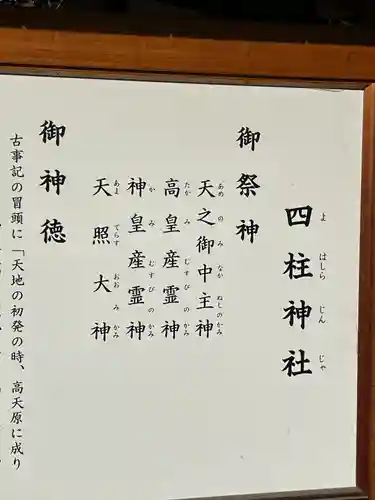 四柱神社
よ はしら じん じゃ
御祭神
天之御中主神
あめ の み なか ぬしのかみ
高皇産霊神
たか み むすびのかみ
神皇産霊神
か み むすびのかみ
天照大神
あま てらす おお み かみ
御神徳
古事記の冒頭に「天地の初発の時、高天原に成り